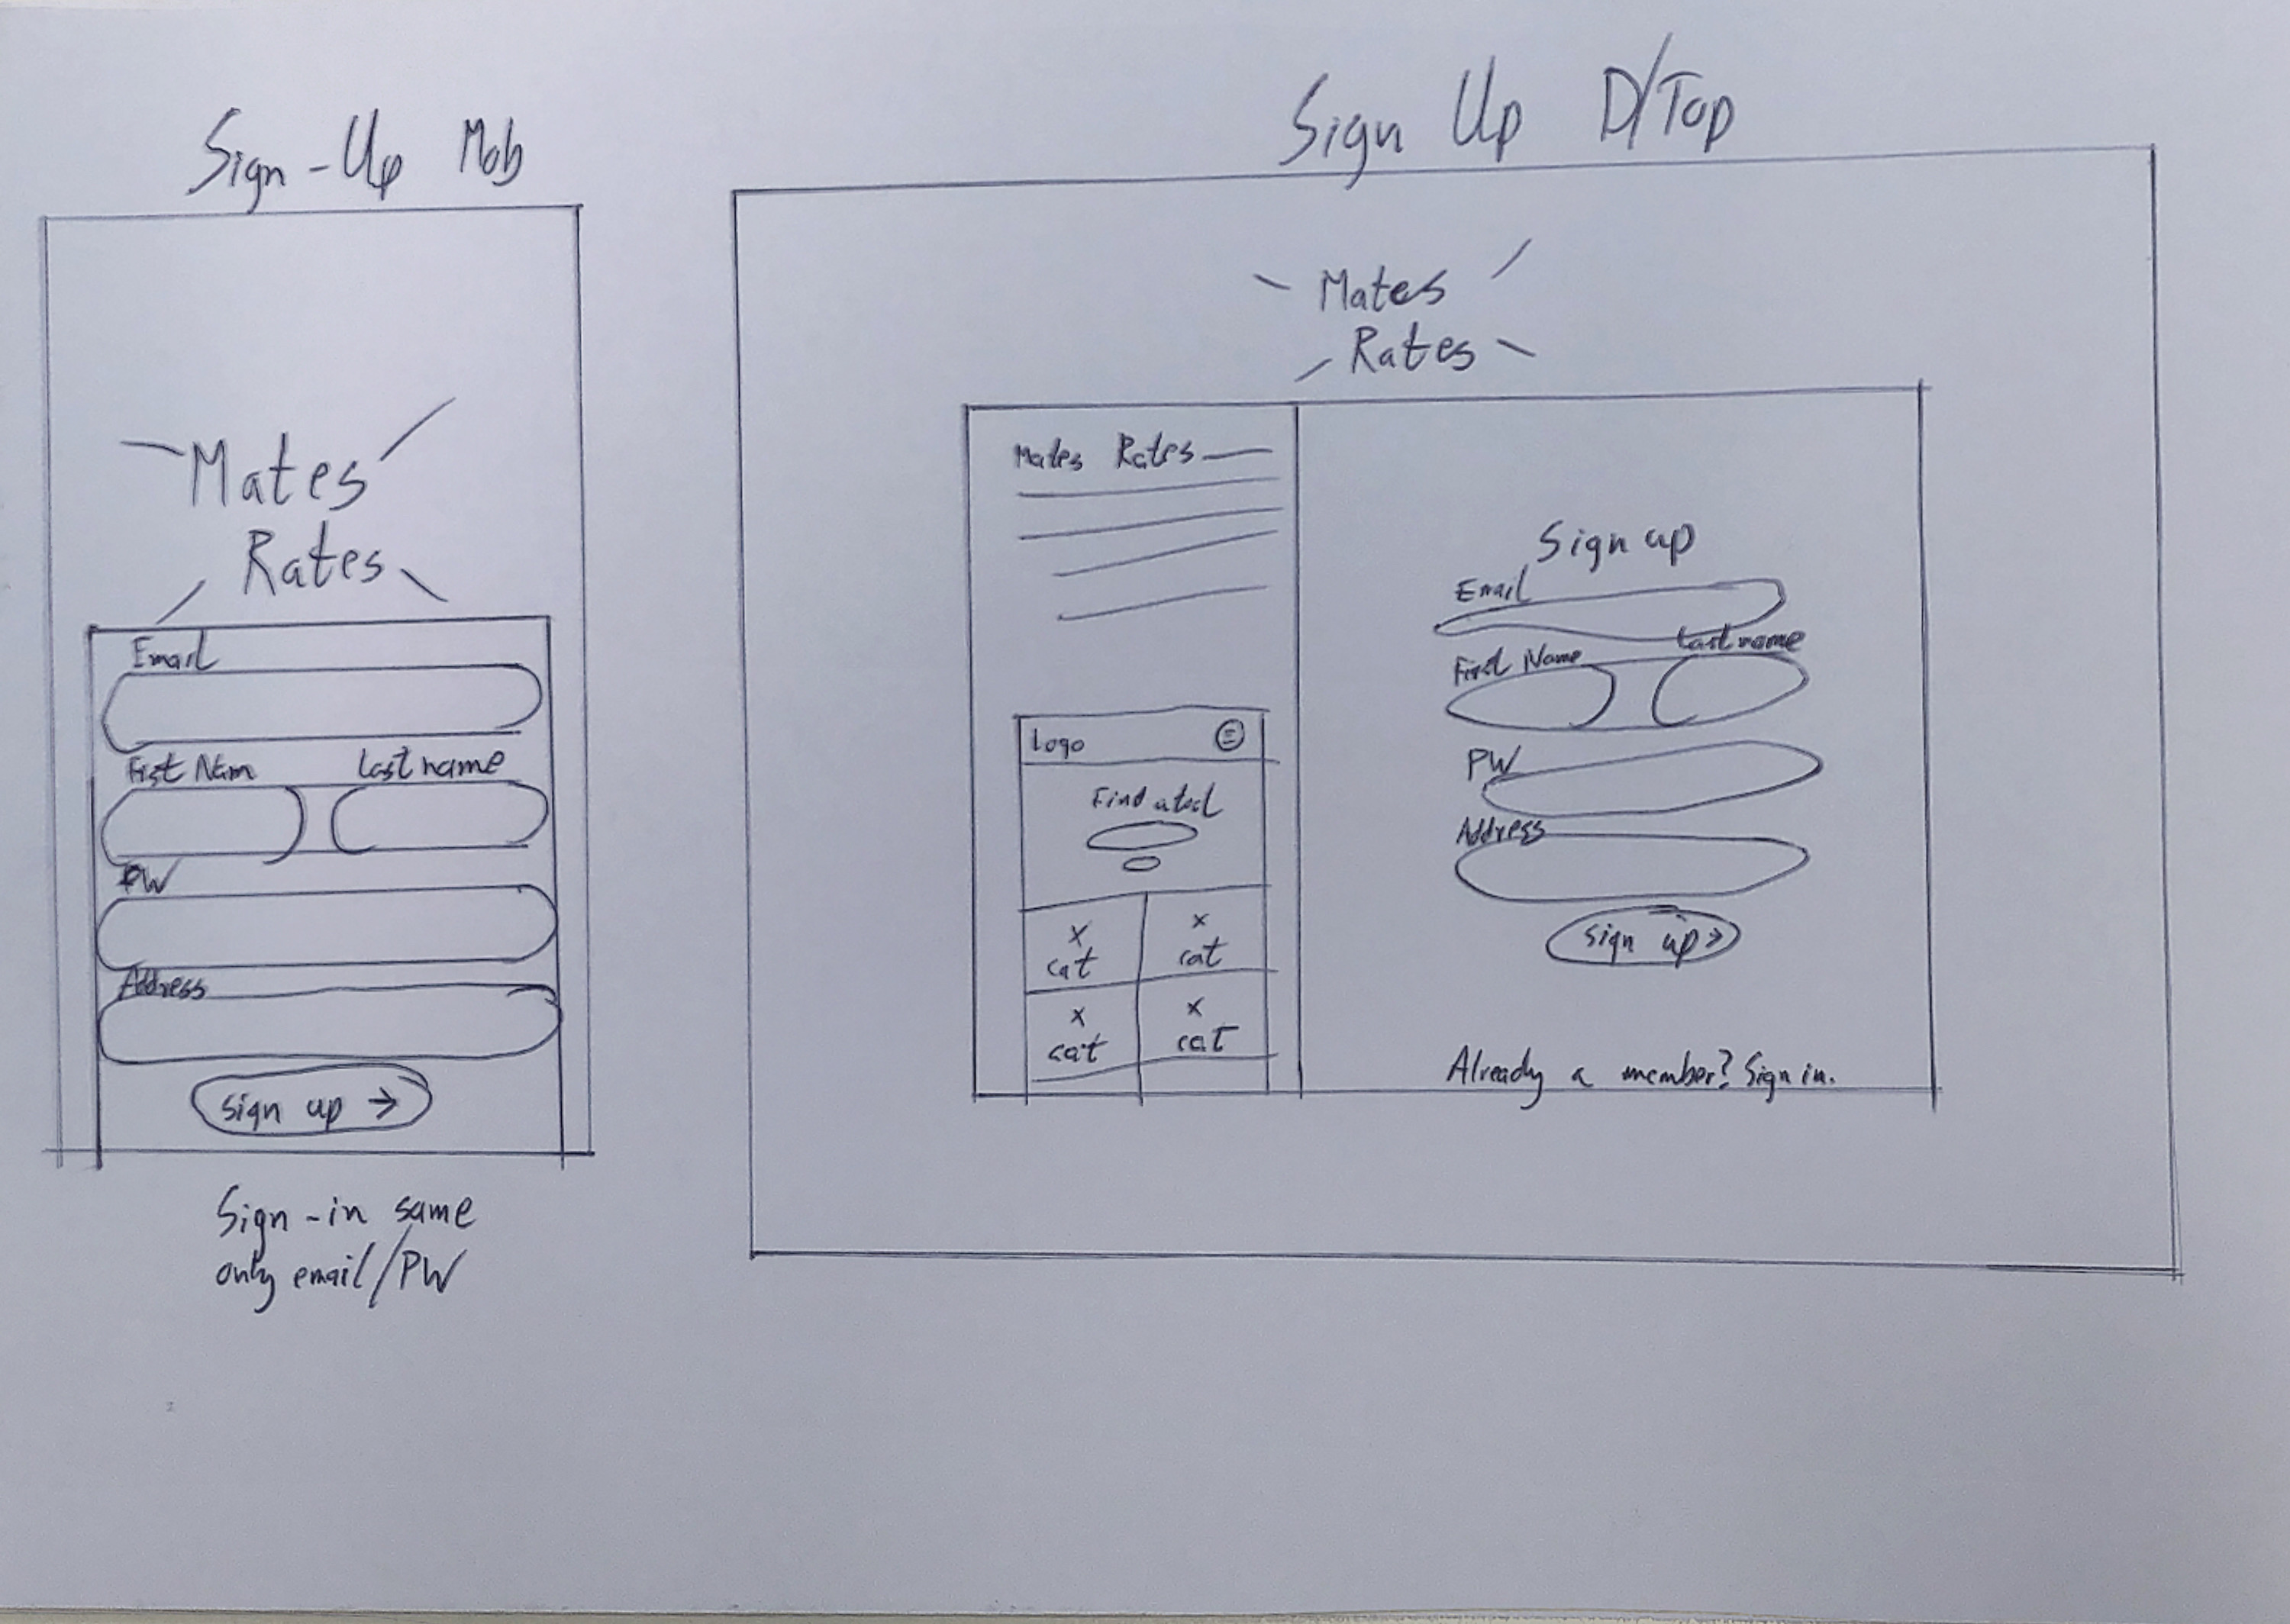 Sign-Up Mob
Mates
Rates
Email
First Nam Last name
PW
Address
sign up →
Sign-in same
only email/PW
Sign Up D/Top
Mates
Rates
Mates Rates
Logo
Find a
x x
cat cat
x x
cat cat
Sign up
Email
First Name Last name
PW
Address
sign up →
Already a member? Sign in.